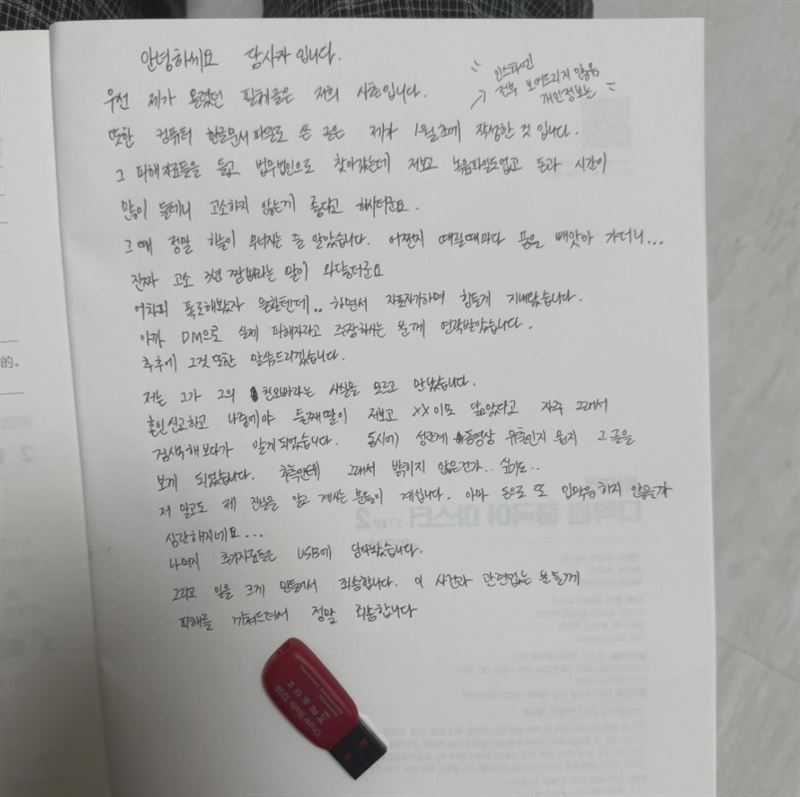 안녕하세요 당사자 입니다.
인스타엔
전부 보여드리지 않음
개인정보는
우선 제가 올렸던 필체글은 저희 사촌입니다.
또한 컴퓨터 한글문서파일로 쓴 글은 제가 1월초에 작성한 것 입니다.
그 피해자료들을 들고 법무법인으로 찾아갔는데 저보고 녹음파일도없고 돈과 시간이
많이 들테니 고소하지 않는게 좋다고 하시더군요.
그 때 정말 하늘이 무너지는 줄 알았습니다. 어쩐지 때릴때마다 폰을 빼앗아 가더니...
진짜 고소 3년 짬바라는 말이 와닿더군요
어차피 폭로해봤자 응할텐데.. 하면서 자포자기하며 힘들게 지내왔습니다.
아까 DM으로 실제 피해자라고 주장하시는 분께 연락받았습니다.
추후에 그것 또한 말씀드리겠습니다.
저는 그가 그의 친오빠라는 사실을 모르고 만났습니다.
혼인신고하고 나중에야 둘째딸이 저보고 XX이모 닮았다고 자주 그래서
검색해보다가 알게되었습니다. 동시에 성관계 동영상 유출인지 뭔지 그 글을
보게 되었습니다. 추측인데 그래서 밝히지 않은건가.. 싶기도..
저 말고도 제 진실을 알고 계시는 분들이 계십니다. 아마 돈으로 또 입막음 하지 않을까
심란해지네요...
나머지 추가자료들은 USB에 담아놨습니다.
그리고 일을 크게 만들어서 죄송합니다. 이 사건과 관련없는 분들께
피해를 끼쳐드려서 정말 죄송합니다
的。
Cruzer Blade 32GB